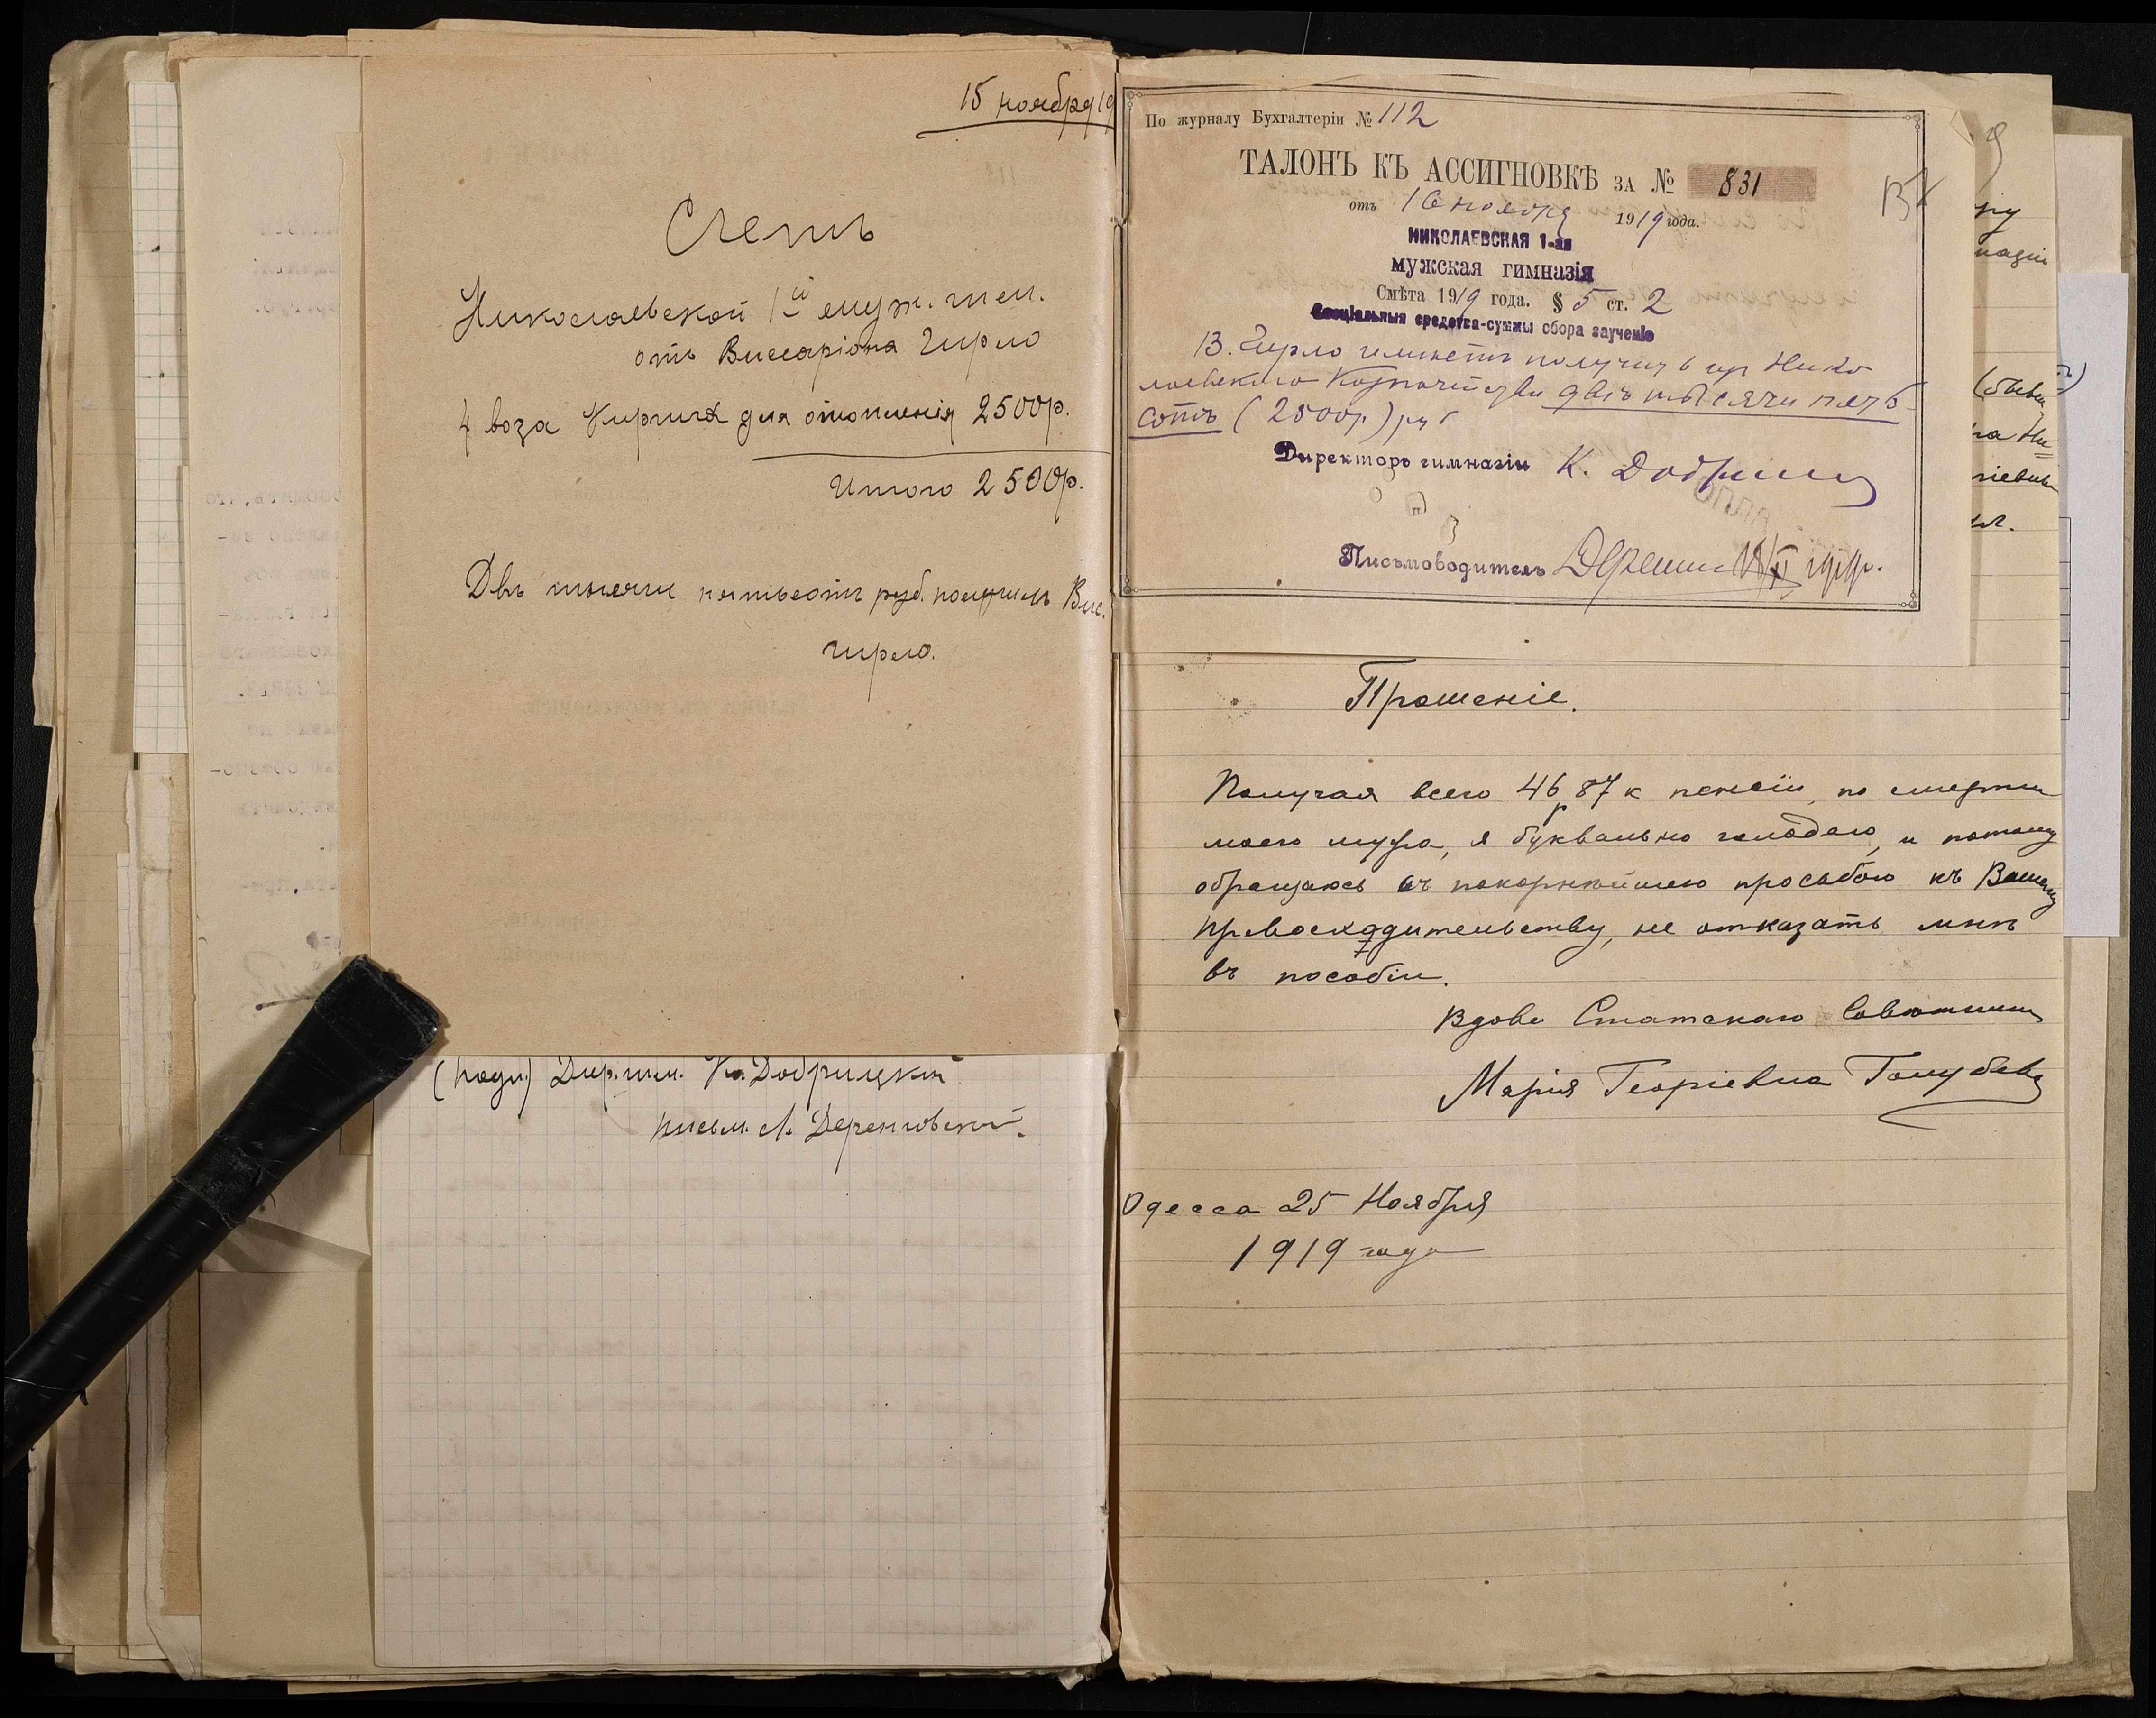 15 ноября 19
Счетъ
Николаевской 1й муж. гимн.
отъ Виссаріона Гирло
4 воза Кирпича для отопленія 2500р.
Итого 2500р.
Двѣ тысячи пятьсотъ руб. получилъ Вис.
Гирло.
(подп.) Дир. гимн. К. Добрицкій
письм. Л. Деренговскій.
По журналу Бухгалтеріи № 112
ТАЛОНЪ КЪ АССИГНОВКѢ ЗА № 831
отъ 16 ноября 1919 года.
НИКОЛАЕВСКАЯ 1-ая
мужская гимназія
Смѣта 1919 года. § 5 ст. 2
Спеціальныя средства-суммы сбора заученіе
В. Гирло имѣетъ получить изъ Нико
лаевского Казначейства двѣ тысячи пять
сотъ (2500р) руб
Директоръ гимназіи К. Добриц
Письмоводитель Дерен 18/XI 1919г.
Прошеніе.
Получая всего 46 р 87 к пенсіи, по смерти
моего мужа, я буквально голодаю, и потому
обращаюсь съ покорнѣйшею просьбою къ Вашему
Превосходительству, не отказать мнѣ
въ пособіи.
Вдова Статскаго Совѣтника
Марія Георгіевна Голубева
Одесса 25 Ноября
1919 года